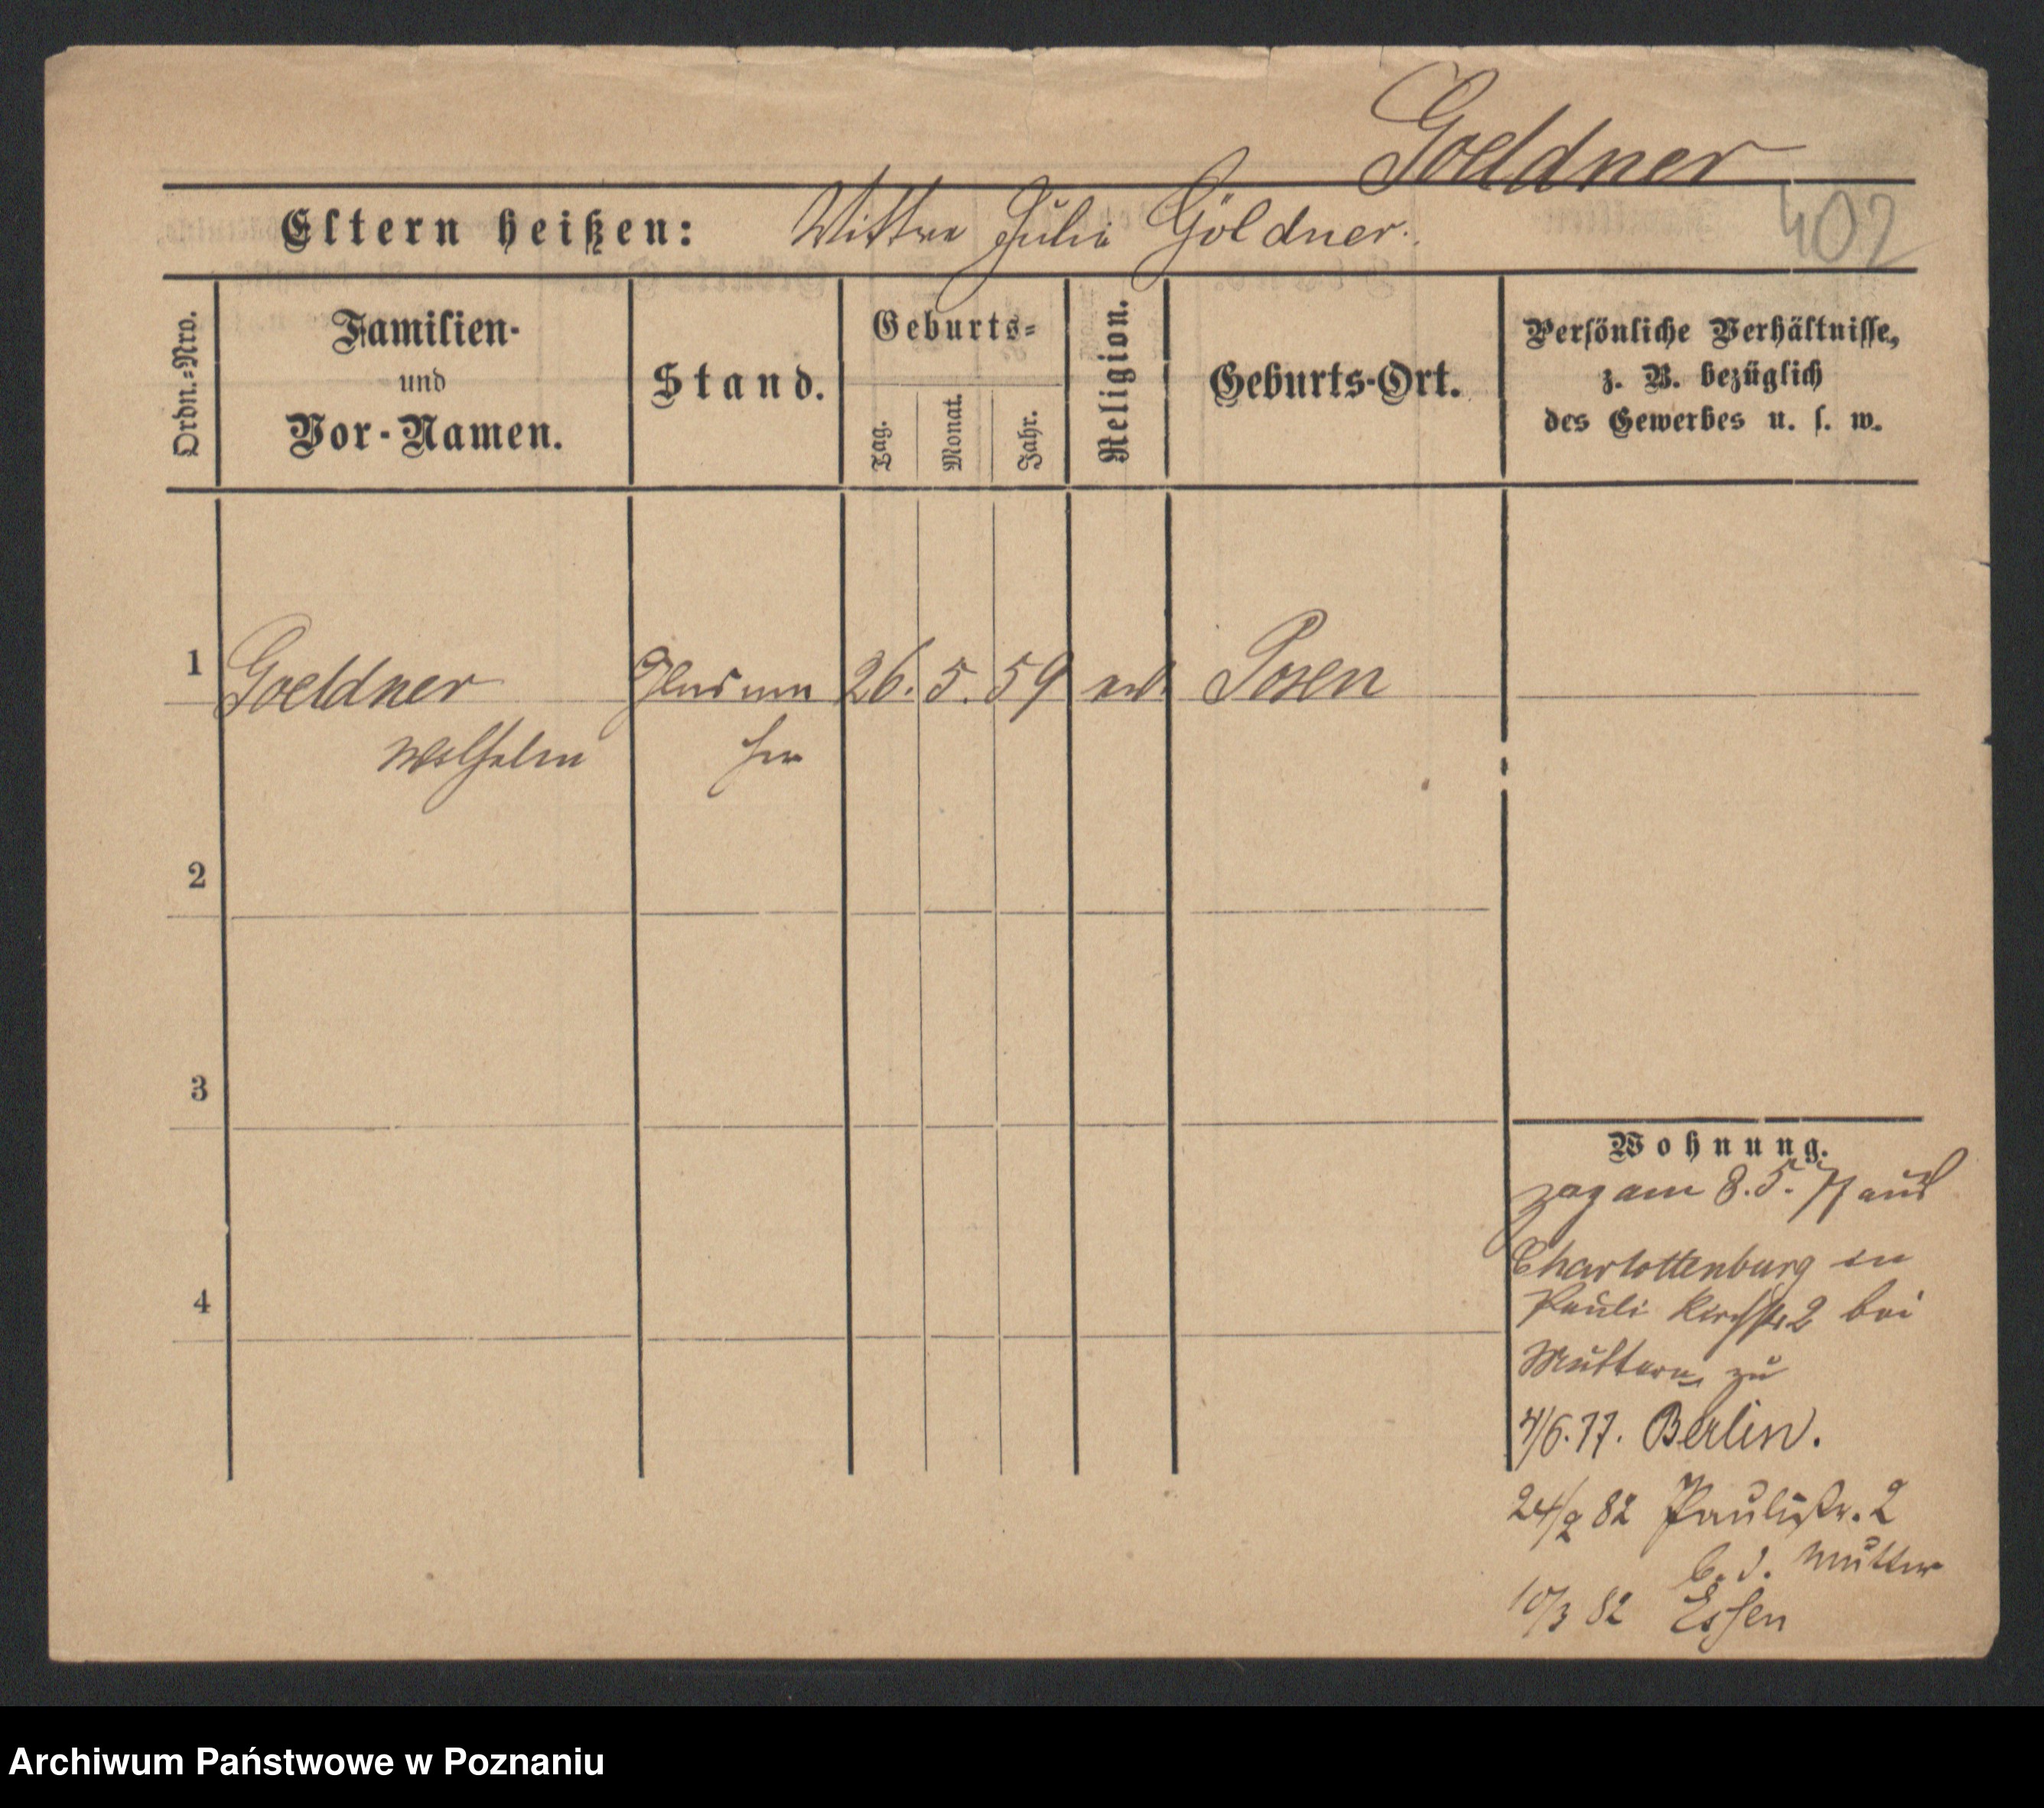 Goeldner
402
Eltern heißen: Wittwe Julie Göldner.
Ordn.-Nro.
Familien-
und
Vor-Namen.
Stand.
Geburts-
Tag.
Monat.
Jahr.
Religion.
Geburts-Ort.
Persönliche Verhältnisse,
z. B. bezüglich
des Gewerbes u. s. w.
1 Goeldner 26. 5. 59 Posen
Wilhelm
2
3
4
Wohnung.
zog am 8. 5. 77 aus
Charlottenburg in
Pauli Kirchstr 2 bei
Muttern zu
4/6. 77. Berlin.
24/2 82 Paulistr. 2
b. d. Mutter
10/3 82 Essen
Archiwum Państwowe w Poznaniu